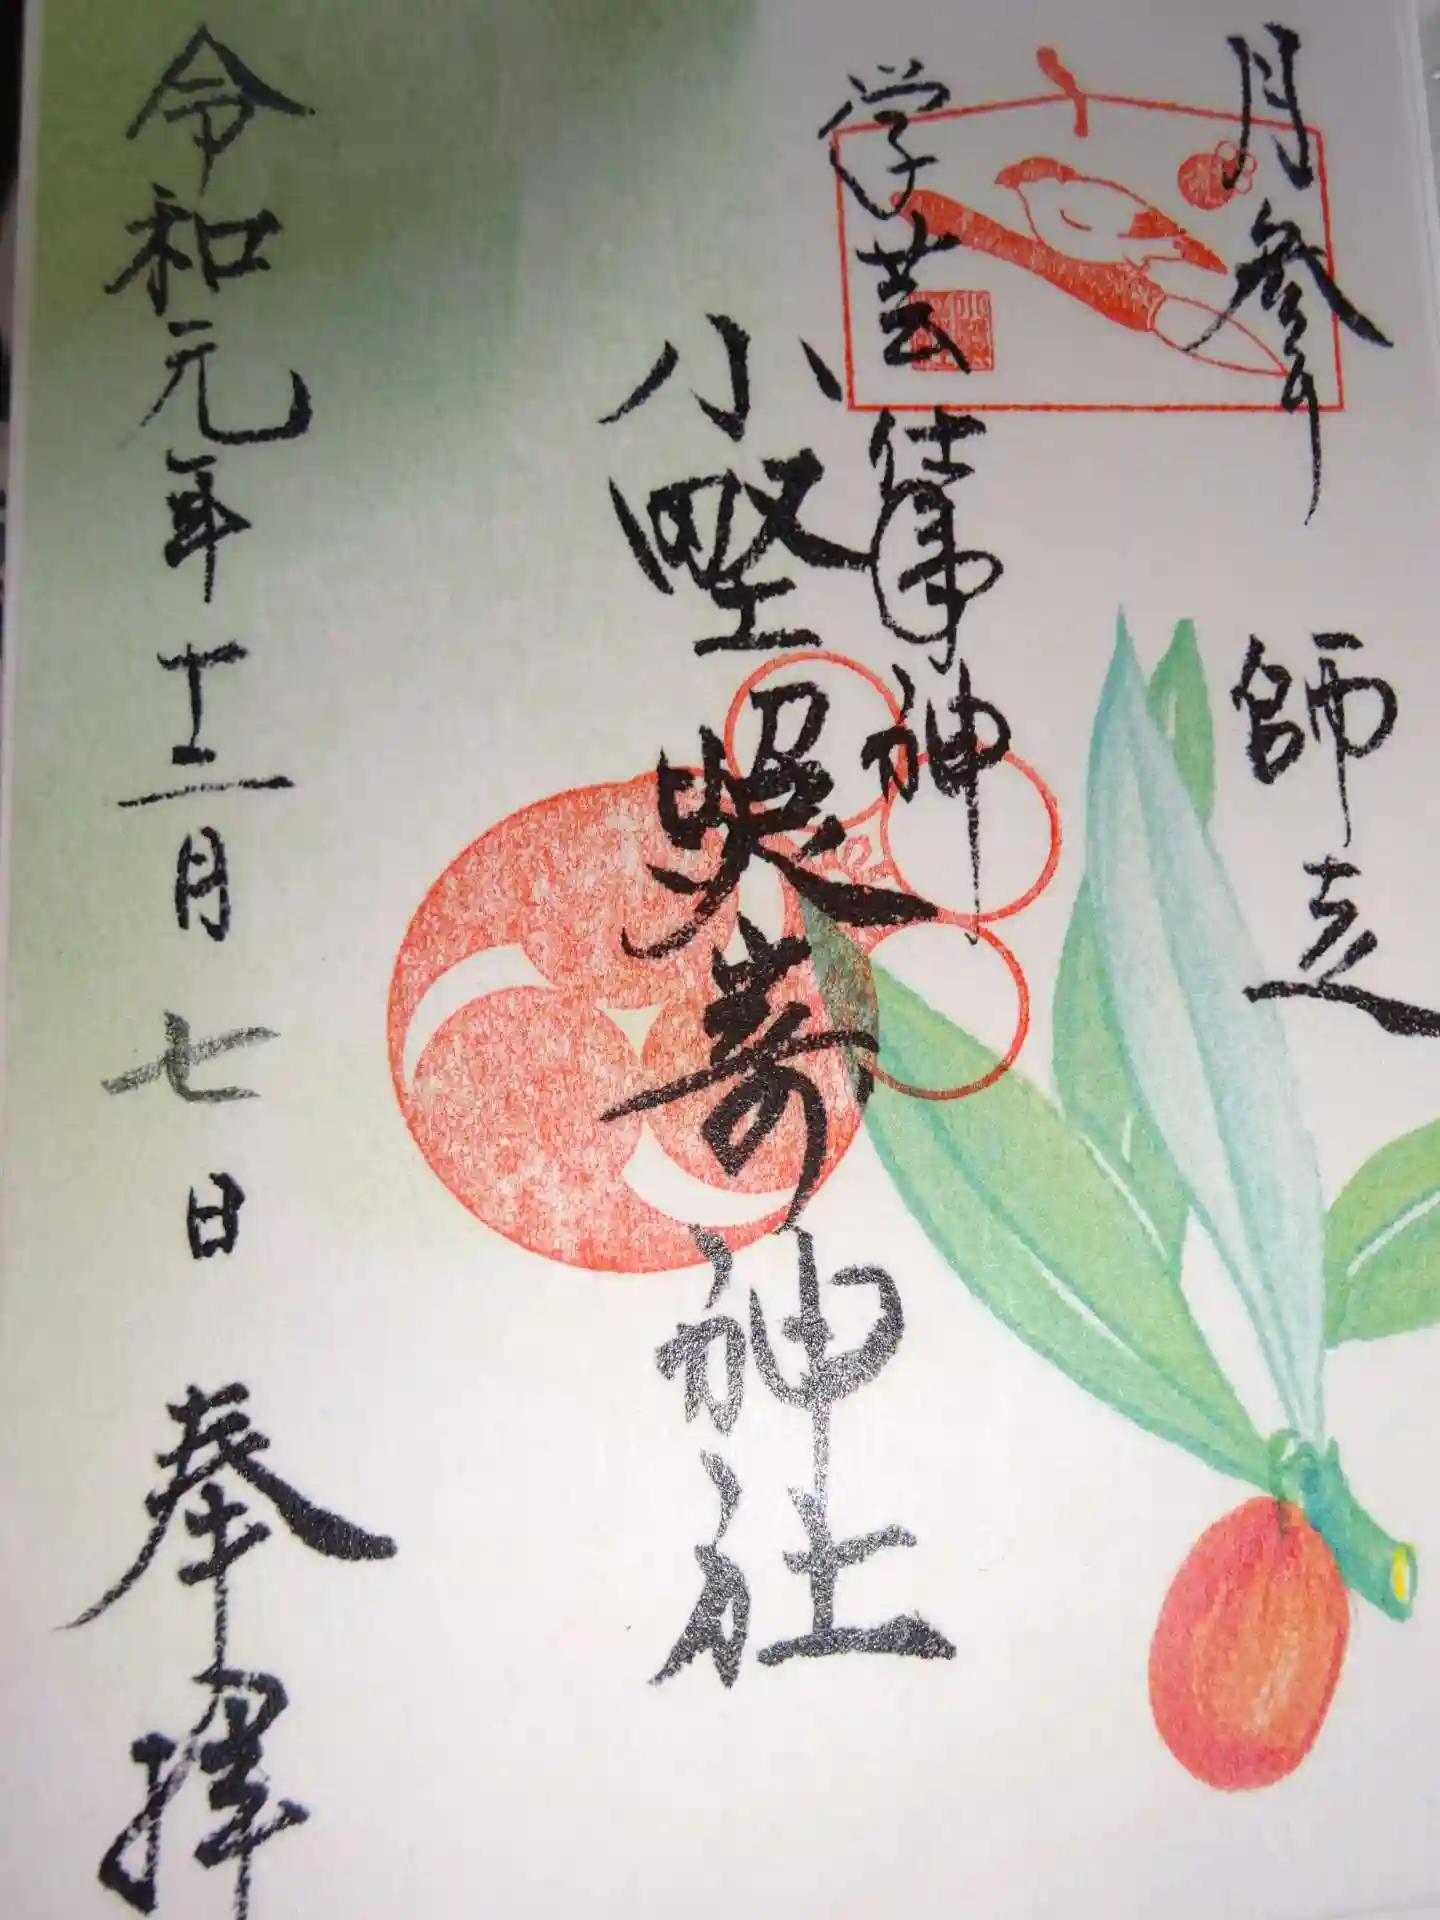 月参り
師走
学芸
神
小野照崎神社
令和元年十二月七日
奉拝